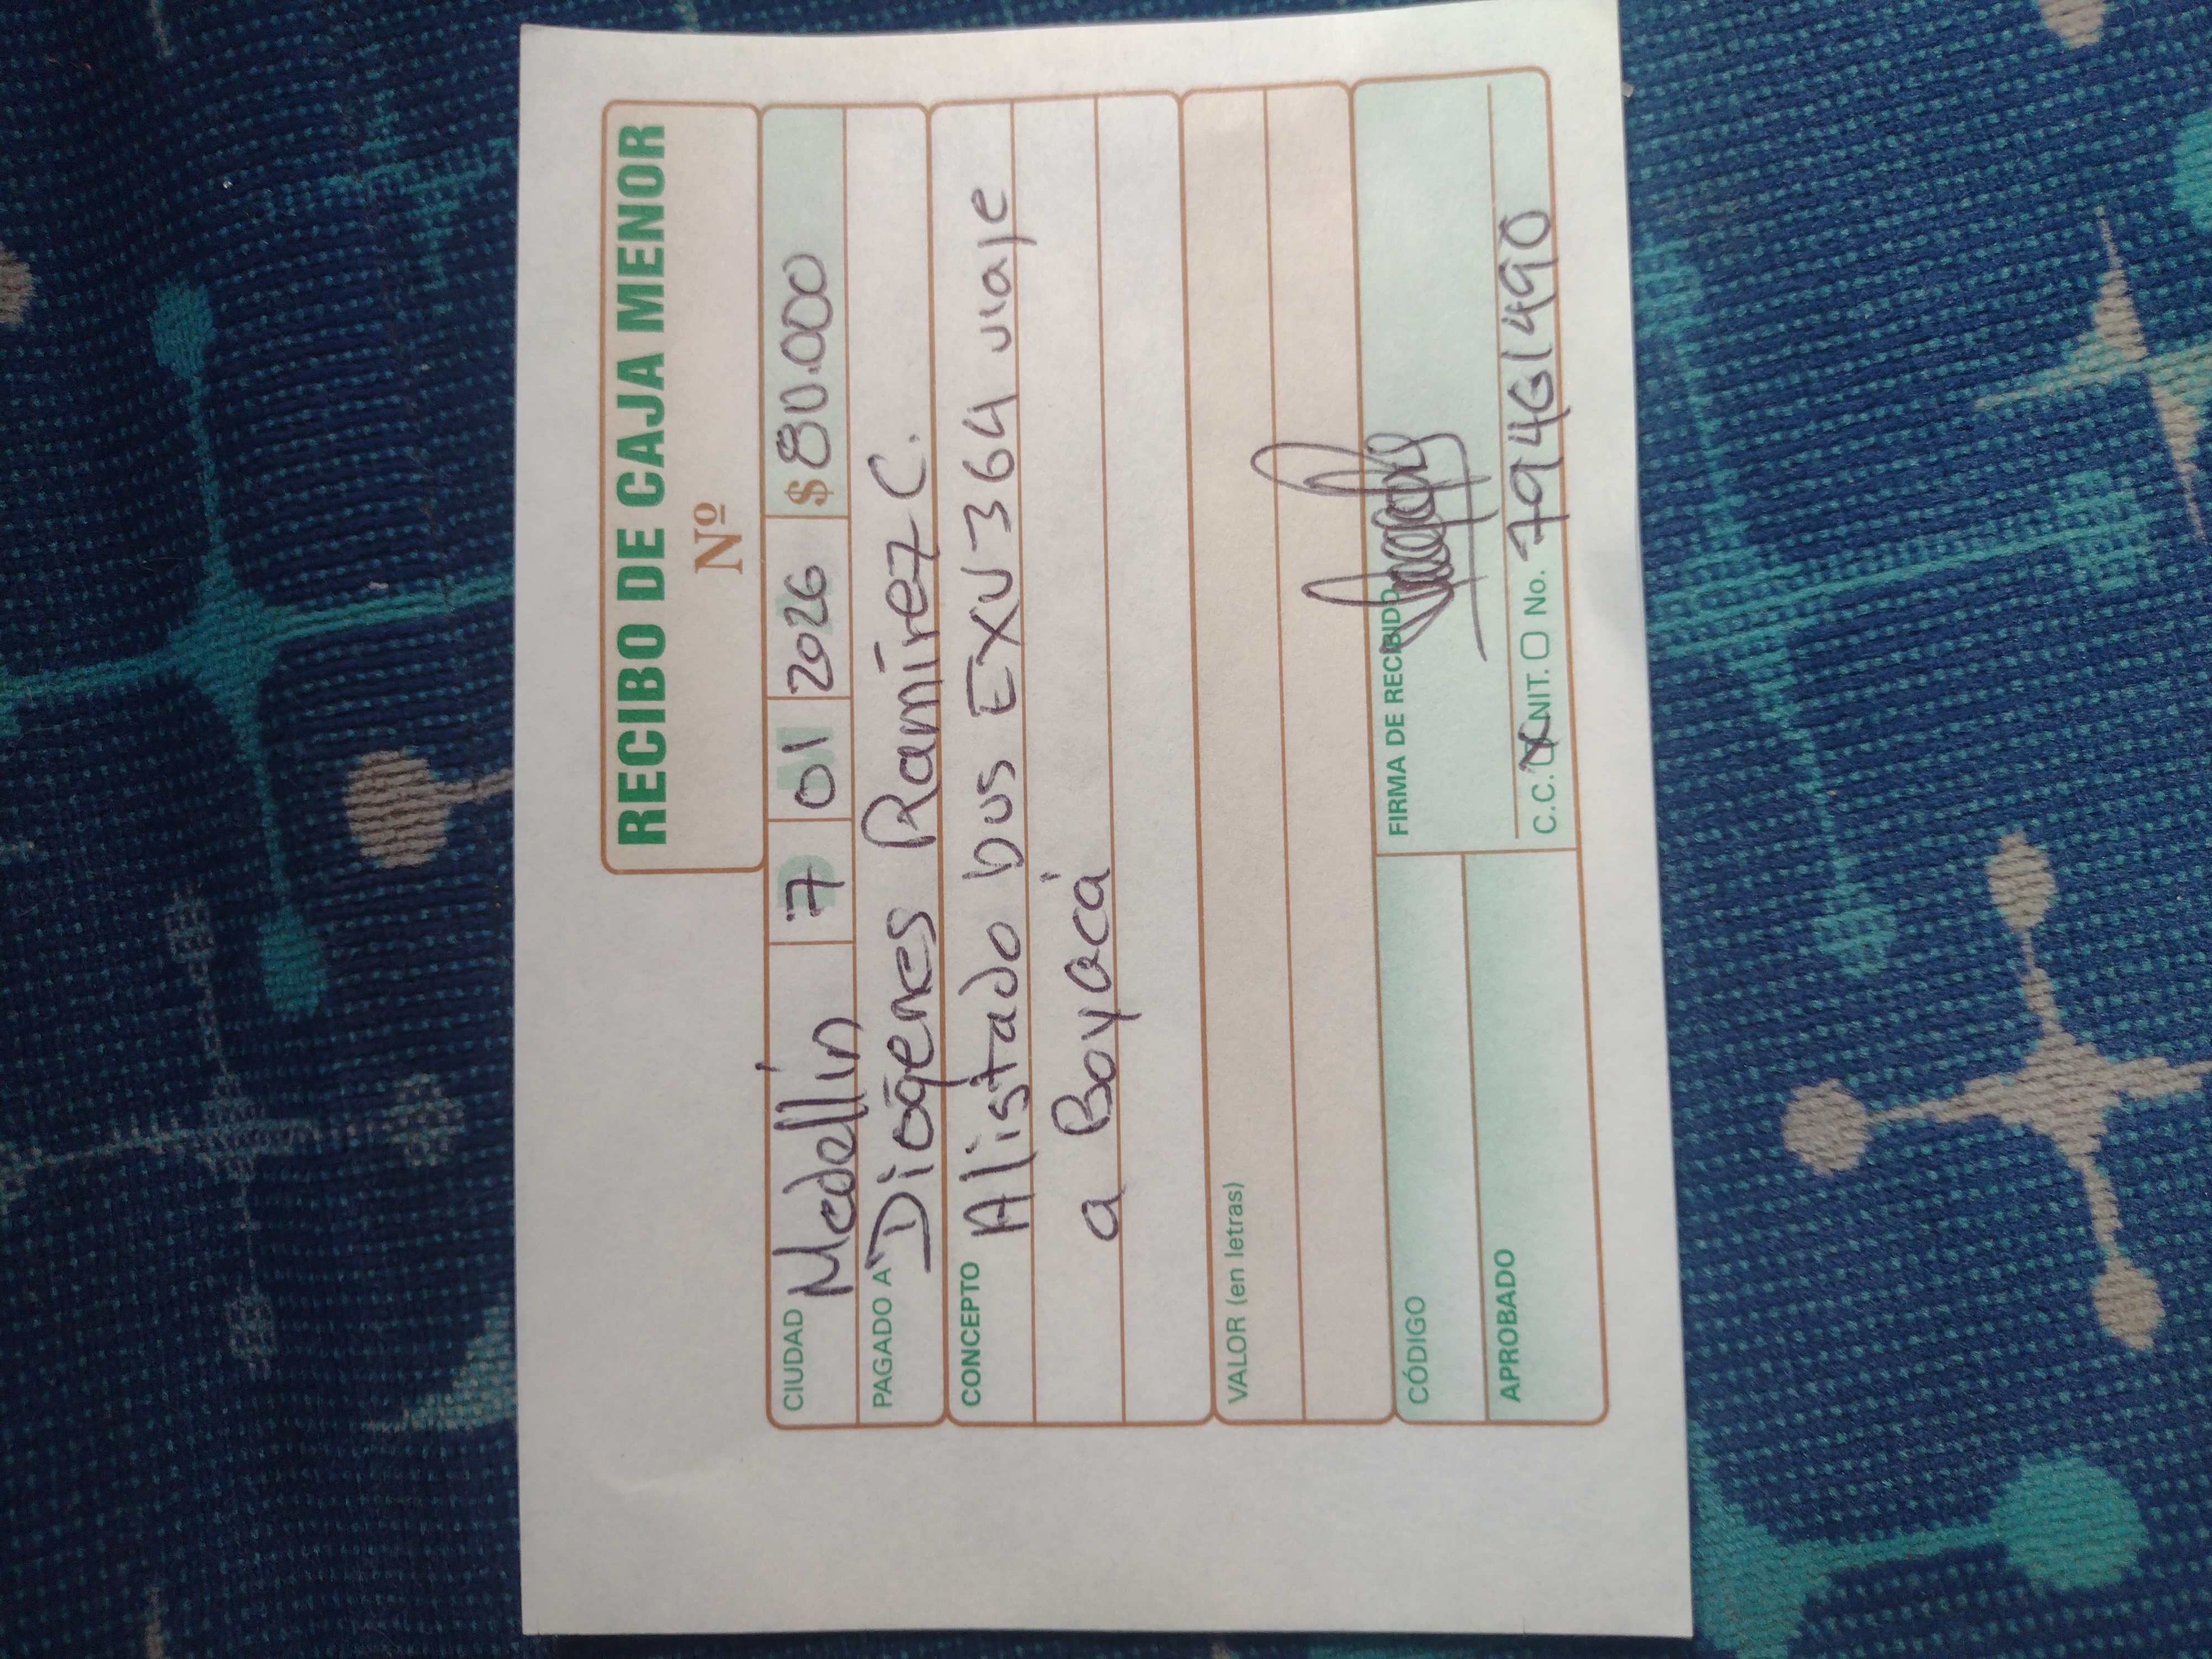 RECIBO DE CAJA MENOR
Nº
CIUDAD Medellín 7 01 2026 $ 80.000
PAGADO A Diógenes Ramírez C.
CONCEPTO Alistado bus EXU364 viaje
a Boyacá
VALOR (en letras)
CÓDIGO
FIRMA DE RECIBIDO
APROBADO
C.C. X NIT. No. 79461490